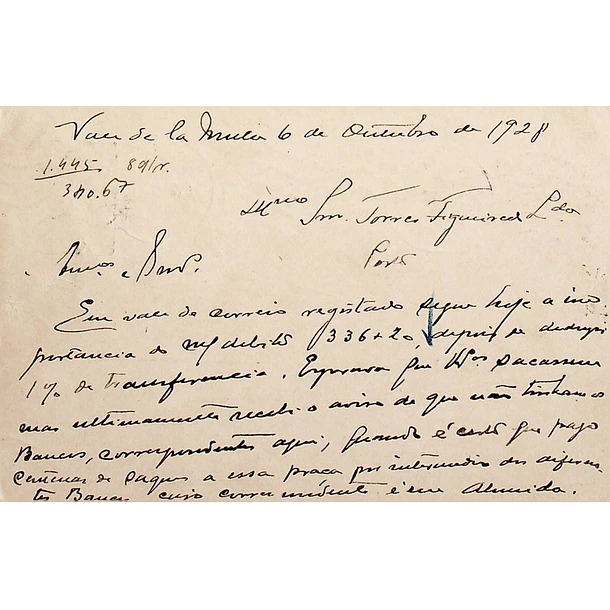 Vale de la Mula 6 de Outubro de 1928
1.445 89/r.
340.67
Illmo Snr. Torres Figueired Lda
Porto
Exmos e Snrs.
Em vale de correio registado segue hoje a im
portancia do m/ debito 336+20, depois de deduzir
1% de transferencia. Esperava que Vos sacassem
mas ultimamente recebi o aviso de que não tinham os
Bancos, correspondentes aqui, quando é certo que pago
centenas de saques a essa praça por intermedio dos diferen
tes Bancos cujo correspondente é em Almeida.